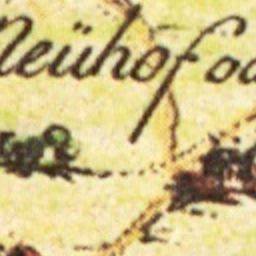 Neühof od